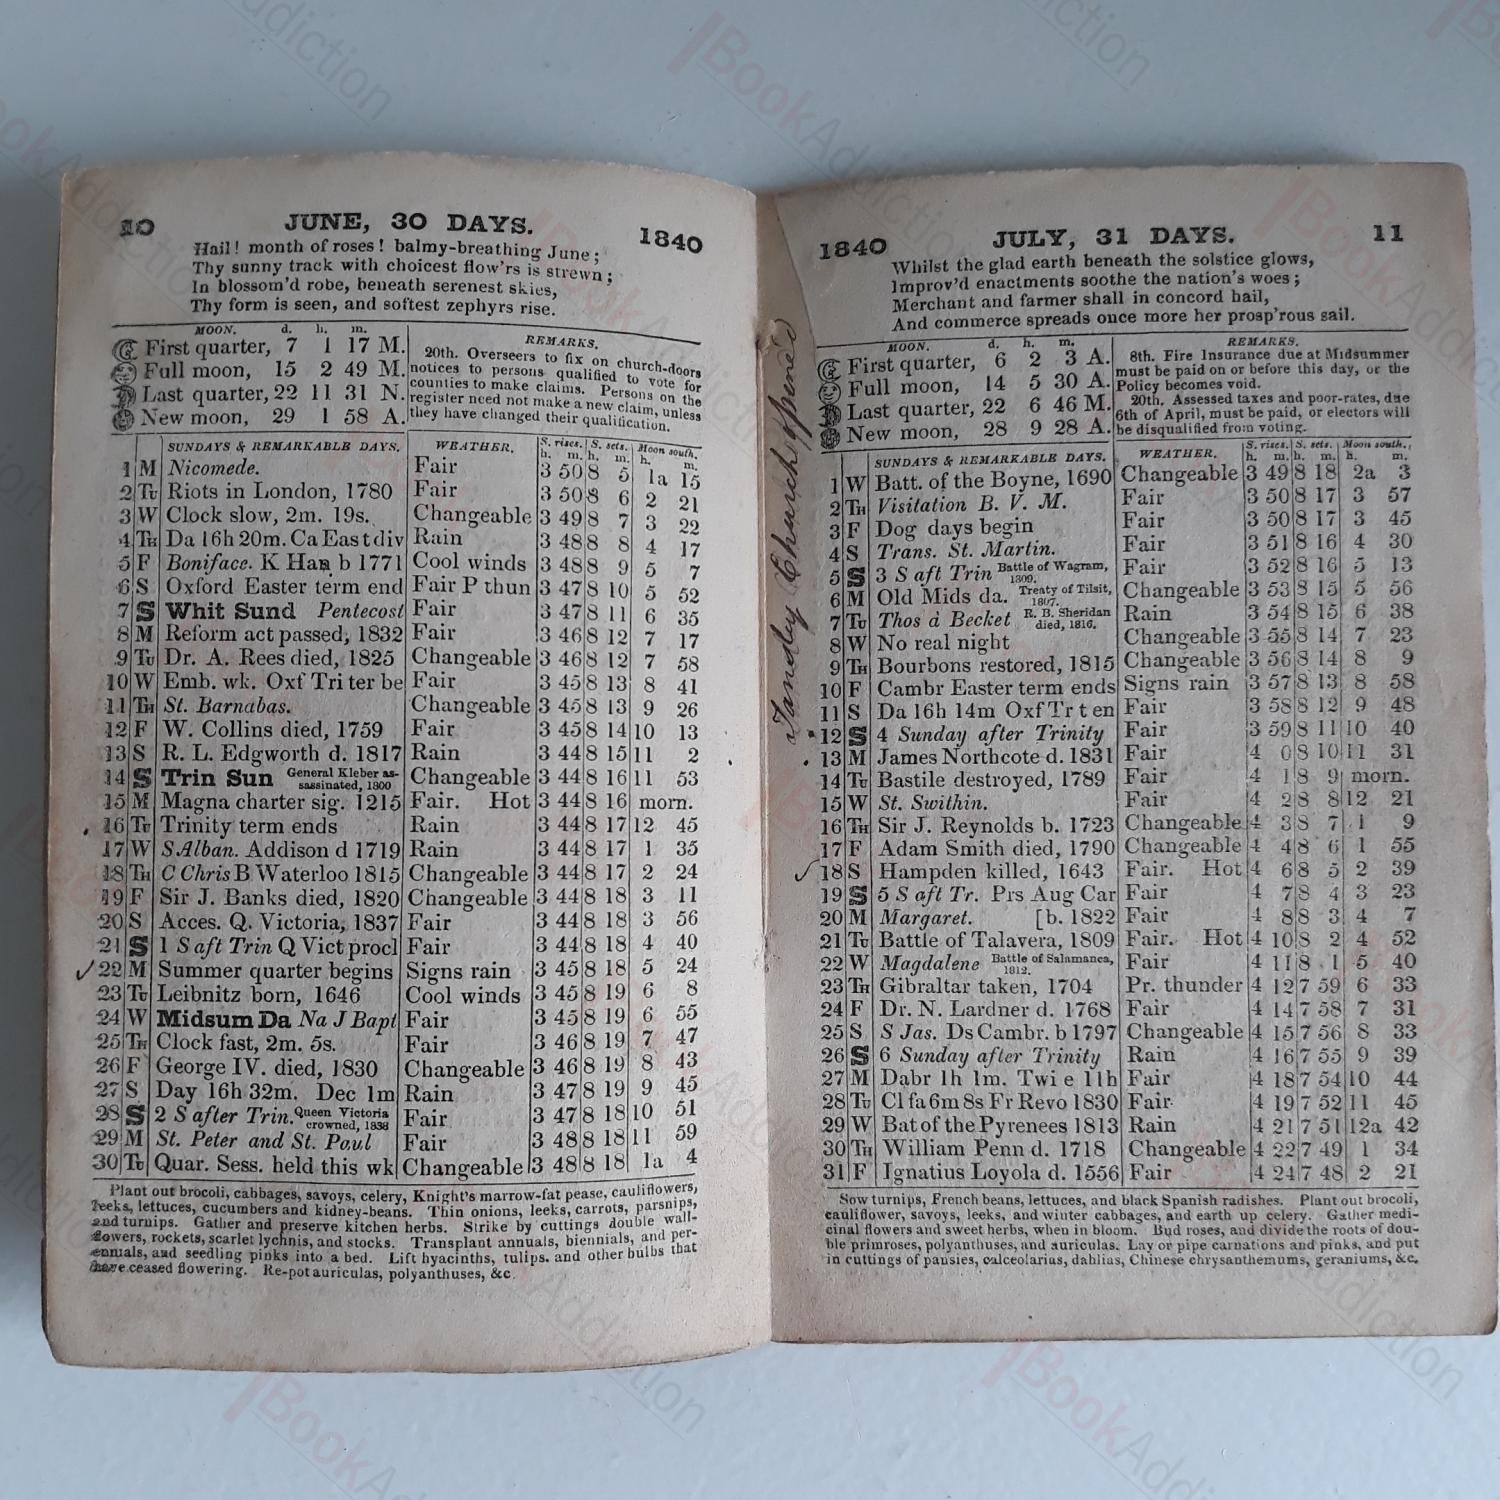 10 JUNE, 30 DAYS. 1840
Hail! month of roses! balmy-breathing June;
Thy sunny track with choicest flow'rs is strewn;
In blossom'd robe, beneath serenest skies,
Thy form is seen, and softest zephyrs rise.
MOON. d. h. m.
First quarter, 7 1 17 M.
Full moon, 15 2 49 M.
Last quarter, 22 11 31 N.
New moon, 29 1 58 A.
REMARKS.
20th. Overseers to fix on church-doors
notices to persons qualified to vote for
counties to make claims. Persons on the
register need not make a new claim, unless
they have changed their qualification.
SUNDAYS & REMARKABLE DAYS. WEATHER. S. rises. S. sets. Moon south.
h. m. h. m. h. m.
1 M Nicomede. Fair 3 50 8 5 1a 15
2 Tu Riots in London, 1780 Fair 3 50 8 6 2 21
3 W Clock slow, 2m. 19s. Changeable 3 49 8 7 3 22
4 Th Da 16h 20m. Ca East div Rain 3 48 8 8 4 17
5 F Boniface. K Han b 1771 Cool winds 3 48 8 9 5 7
6 S Oxford Easter term end Fair P thun 3 47 8 10 5 52
7 S Whit Sund Pentecost Fair 3 47 8 11 6 35
8 M Reform act passed, 1832 Fair 3 46 8 12 7 17
9 Tu Dr. A. Rees died, 1825 Changeable 3 46 8 12 7 58
10 W Emb. wk. Oxf Tri ter be Fair 3 45 8 13 8 41
11 Th St. Barnabas. Changeable 3 45 8 13 9 26
12 F W. Collins died, 1759 Fair 3 45 8 14 10 13
13 S R. L. Edgworth d. 1817 Rain 3 44 8 15 11 2
14 S Trin Sun General Kleber as-sassinated, 1800 Changeable 3 44 8 16 11 53
15 M Magna charter sig. 1215 Fair. Hot 3 44 8 16 morn.
16 Tu Trinity term ends Rain 3 44 8 17 12 45
17 W S Alban. Addison d 1719 Rain 3 44 8 17 1 35
18 Th C Chris B Waterloo 1815 Changeable 3 44 8 17 2 24
19 F Sir J. Banks died, 1820 Changeable 3 44 8 18 3 11
20 S Acces. Q. Victoria, 1837 Fair 3 44 8 18 3 56
21 S 1 S aft Trin Q Vict procl Fair 3 44 8 18 4 40
22 M Summer quarter begins Signs rain 3 45 8 18 5 24
23 Tu Leibnitz born, 1646 Cool winds 3 45 8 19 6 8
24 W Midsum Da Na J Bapt Fair 3 45 8 19 6 55
25 Th Clock fast, 2m. 5s. Fair 3 46 8 19 7 47
26 F George IV. died, 1830 Changeable 3 46 8 19 8 43
27 S Day 16h 32m. Dec 1m Rain 3 47 8 19 9 45
28 S 2 S after Trin. Queen Victoria crowned, 1838 Fair 3 47 8 18 10 51
29 M St. Peter and St. Paul Fair 3 48 8 18 11 59
30 Tu Quar. Sess. held this wk Changeable 3 48 8 18 1a 4
Plant out brocoli, cabbages, savoys, celery, Knight's marrow-fat pease, cauliflowers,
leeks, lettuces, cucumbers and kidney-beans. Thin onions, leeks, carrots, parsnips,
and turnips. Gather and preserve kitchen herbs. Strike by cuttings double wall-
flowers, rockets, scarlet lychnis, and stocks. Transplant annuals, biennials, and per-
ennials, and seedling pinks into a bed. Lift hyacinths, tulips. and other bulbs that
have ceased flowering. Re-pot auriculas, polyanthuses, &c.
Church Opened
1840 JULY, 31 DAYS. 11
Whilst the glad earth beneath the solstice glows,
Improv'd enactments soothe the nation's woes;
Merchant and farmer shall in concord hail,
And commerce spreads once more her prosp'rous sail.
MOON. d. h. m.
First quarter, 6 2 3 A.
Full moon, 14 5 30 A.
Last quarter, 22 6 46 M.
New moon, 28 9 28 A.
REMARKS.
8th. Fire Insurance due at Midsummer
must be paid on or before this day, or the
Policy becomes void.
20th. Assessed taxes and poor-rates, due
6th of April, must be paid, or electors will
be disqualified from voting.
SUNDAYS & REMARKABLE DAYS. WEATHER. S. rises. S. sets. Moon south.
h. m. h. m. h. m.
1 W Batt. of the Boyne, 1690 Changeable 3 49 8 18 2a 3
2 Th Visitation B. V. M. Fair 3 50 8 17 3 57
3 F Dog days begin Fair 3 50 8 17 3 45
4 S Trans. St. Martin. Fair 3 51 8 16 4 30
5 S 3 S aft Trin Battle of Wagram, 1809. Fair 3 52 8 16 5 13
6 M Old Mids da. Treaty of Tilsit, 1807. Changeable 3 53 8 15 5 56
7 Tu Thos à Becket R. B. Sheridan died, 1816. Rain 3 54 8 15 6 38
8 W No real night Changeable 3 55 8 14 7 23
9 Th Bourbons restored, 1815 Changeable 3 56 8 14 8 9
10 F Cambr Easter term ends Signs rain 3 57 8 13 8 58
11 S Da 16h 14m Oxf Tr t en Fair 3 58 8 12 9 48
12 S 4 Sunday after Trinity Fair 3 59 8 11 10 40
13 M James Northcote d. 1831 Fair 4 0 8 10 11 31
14 Tu Bastile destroyed, 1789 Fair 4 1 8 9 morn.
15 W St. Swithin. Fair 4 2 8 8 12 21
16 Th Sir J. Reynolds b. 1723 Changeable 4 3 8 7 1 9
17 F Adam Smith died, 1790 Changeable 4 4 8 6 1 55
18 S Hampden killed, 1643 Fair. Hot 4 6 8 5 2 39
19 S 5 S aft Tr. Prs Aug Car Fair 4 7 8 4 3 23
20 M Margaret. [b. 1822 Fair 4 8 8 3 4 7
21 Tu Battle of Talavera, 1809 Fair. Hot 4 10 8 2 4 52
22 W Magdalene Battle of Salamanca, 1812. Fair 4 11 8 1 5 40
23 Th Gibraltar taken, 1704 Pr. thunder 4 12 7 59 6 33
24 F Dr. N. Lardner d. 1768 Fair 4 14 7 58 7 31
25 S S Jas. Ds Cambr. b 1797 Changeable 4 15 7 56 8 33
26 S 6 Sunday after Trinity Rain 4 16 7 55 9 39
27 M Dabr 1h 1m. Twi e 11h Fair 4 18 7 54 10 44
28 Tu Cl fa 6m 8s Fr Revo 1830 Fair 4 19 7 52 11 45
29 W Bat of the Pyrenees 1813 Rain 4 21 7 51 12a 42
30 Th William Penn d. 1718 Changeable 4 22 7 49 1 34
31 F Ignatius Loyola d. 1556 Fair 4 24 7 48 2 21
Sow turnips, French beans, lettuces, and black Spanish radishes. Plant out brocoli,
cauliflower, savoys, leeks, and winter cabbages, and earth up celery. Gather medi-
cinal flowers and sweet herbs, when in bloom. Bud roses, and divide the roots of dou-
ble primroses, polyanthuses, and auriculas. Lay or pipe carnations and pinks, and put
in cuttings of pansies, calceolarias, dahlias, Chinese chrysanthemums, geraniums, &c.
BookAddiction